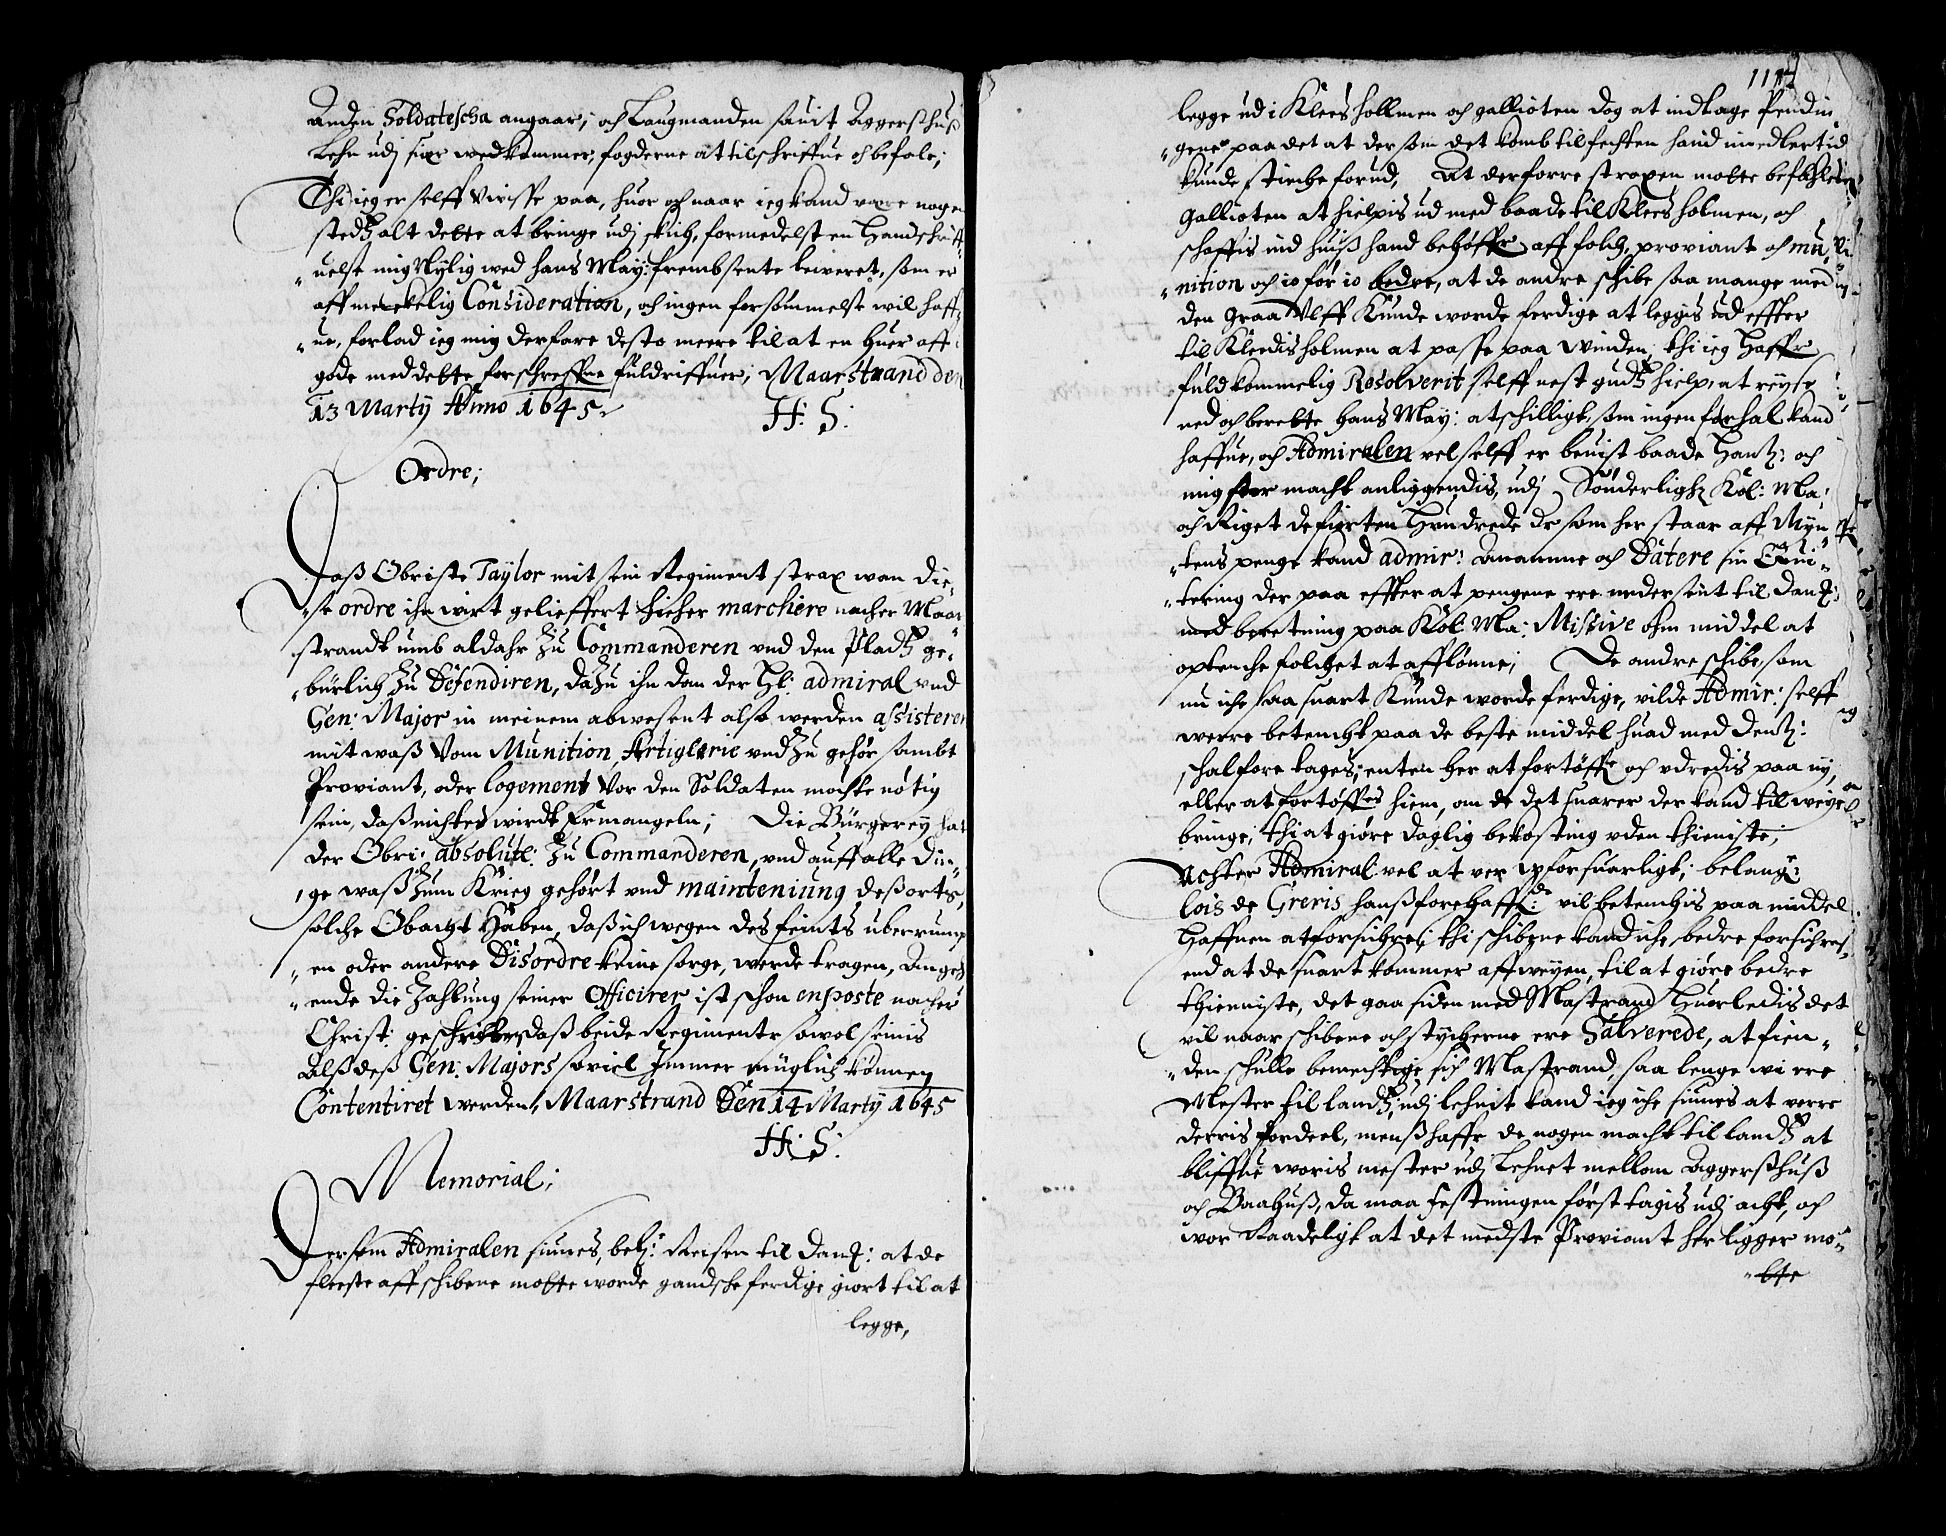 anden Soldatescha angaar, och Laugmanden sauit Aggershuß
Lehn udj siær wedkommer, fogderne at tilschriffue och befale;
Thi ieg er selff Visse paa, huor och naar ieg kand være nogen
stedtz alt dette at bringe udj skich, formedelst en Handschrifft-
uelse mig Nylig wed hans May: frembsente leiveret, som er
aff merckelig Consideration, och ingen forsømmelse wil haff-
ue, forlad ieg mig derfore desto meere til at en huer aff
gode med dette forschreffne fuldriffuer; Maarstrand den
13 Martij Anno 1645
H: S:
Ordre;
Daß Obriste Taylor mit sein Regiment strax wan die-
se ordre ihn wirt gelieffert hieher marchere nacher Maar
strandt umb aldahr zu Commanderen und den Pladtz ge-
bürlich zu Defendiren, dazu ihn dan der H: admiral und
Gen: Major in meinem abwesent also werden assisteren
mit waß Vom Munition, Artiglerie und zu gehør sambt
Proviant, oder logement Vor den Soldaten mochte nötig
sein, daß nichtes wirdt Ermangeln; Die Bürgereÿ hat
der Obri: absolute: zu Commanderen, und auff alle din-
ge waß zum Krieg gehört und mainteniung deß orts,
solche Obacht Haben, daß ich wegen des feints uberrump
en oder andere Disordre keine sorge, werde tragen, Angeh
ende die Zahlung seiner Officirer ist schon enposte nacher
Christ: geschrieben daß beide Regimenter sowol seinis
Alß deß Gen: Majors soviel Immer müglich können
Contentiret werden, Maarstrand Den 14 Martij 1645
H: S:
Memorial;
Dersom Admiralen siunes, bel: Reisen til Dan: at de
fleeste aff schibene motte worde gandsche ferdige giort til at
legge,
117
legge ud i Kleesholmen och gallioten dog at indtage Pendin
gene paa det at der som det komb til fechten hand imedlertid
kunde stiche forud, At derforre straxen motte befahles
Gallioten at hielpis ud med baade til Kleesholmen, och
schaffis ind huiß hand behøffr aff folch, proviant och mu-
nition och io før io bedre, at de andre schibe saa mange med
den Graa Ulff Kunde worde ferdige at leggis ud effter
til Kleedisholmen at passe paa Winden, thi ieg Haffr
fuldkommelig Resolverit selff nest gudtz hielp, at reyse
ned och berette hans May: atschilligt, som ingen forhal kand
haffue, och Admiralen vel selff er beuist baade Hantz: och
mig stor macht anliggendis, udj Sønderligh Kol: Ma:
och Riget de fiørten Hundrede dr som her staar aff Myn-
tens penge kand admir: Anamme och Datere sin Qui-
tering der paa effter at pengene ere undersent til Dan:
med beretning paa Kol: Ma: Missive ohm middel at
optenche folchet at afflønne; De andre schibe, som
nu iche saa snart Kunde worde ferdige, vilde Admir: selff
werre betencht paa de beste middel huad med dentz:
schal foretages, enten her at fortøffe och udredis paa ny
eller at fortøffes hiem, om de det snarer der kand til weye
bringe, thi at giøre daglig bekosting uden thieniste;
Achter Admiral vel at ver uforsuarligt; belang:
lois de Greris hanß forehaff: vil betenchis paa middel
Haffnen at forsichre; thi schibene kand iche bedre forsichres
end at de snart kommer aff weyen, til at giøre bedre
thienniste, det gaa siden med Mastrand Huorledis det
vil naar schibene och stycherne ere Salverede, at fien-
den schulle bemechtige sich Mastrand, saa lenge wi ere
Mester til landtz, udj lehnit kand ieg iche siunes at verre
derris fordeel, menß haffr de nogen macht til landtz at
bliffue woris mester udj Lehnet mellom Aggershuß
och Baahuß, da maa Festningen først tagis udj acht, och
wor Raadeligt at det medste Proviant her ligger mo-
tte